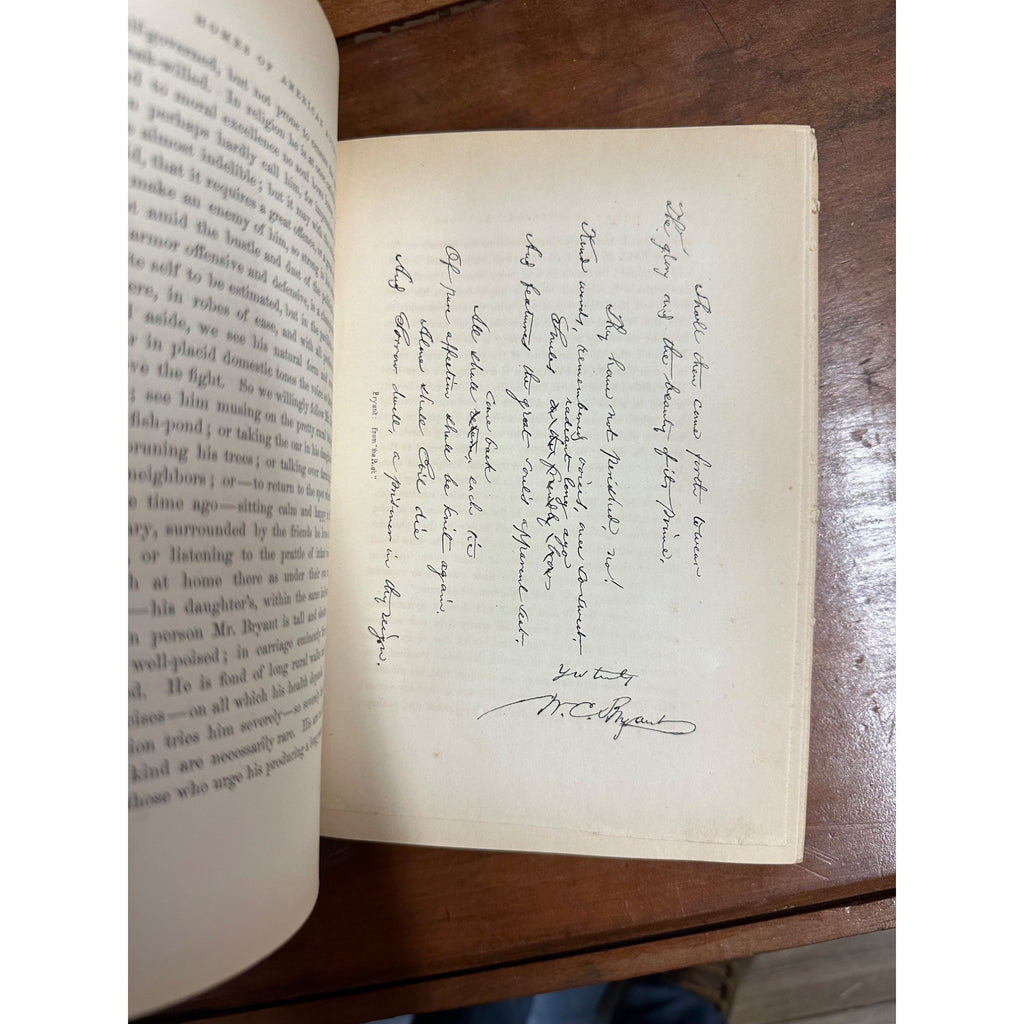 HOMES OF AMERICAN
self-governed, but not prone to
weak-willed. In religion he is at once
to moral excellence no soul
perhaps hardly call him, for
almost indelible; but it may with
that it requires a great offence, or a
make an enemy of him, so strong is
amid the bustle and dust of the
armor offensive and defensive, is a
self to be estimated, but in the
in robes of ease, and with all
aside, we see his natural form and
in placid domestic tones the voice
the fight. So we willingly follow
see him musing on the pretty rural
fish-pond; or taking the oar in his
pruning his trees; or talking over
neighbors; or—to return to the spot
time ago—sitting calm and happy in
surrounded by the friends he
or listening to the prattle of infant
at home there as under their
—his daughter's, within the same
person Mr. Bryant is tall and
well-poised; in carriage eminently
He is fond of long rural walks
—on all which his health
tries him severely—so severely
kind are necessarily rare. His
those who urge his producing a long
Shall then come forth to wear
The glory and the beauty of its prime.
They have not perished, no!
Kind words, remembered voices, once so sweet,
Smiles radiant long ago
And features the great soul's apparent seat.
come back
All shall return, each tie
Of pure affection shall be knit again.
Alone shall Evil die
And Sorrow dwell, a prisoner in thy reign.
Yrs truly
W. C. Bryant
Bryant: from "the Past."